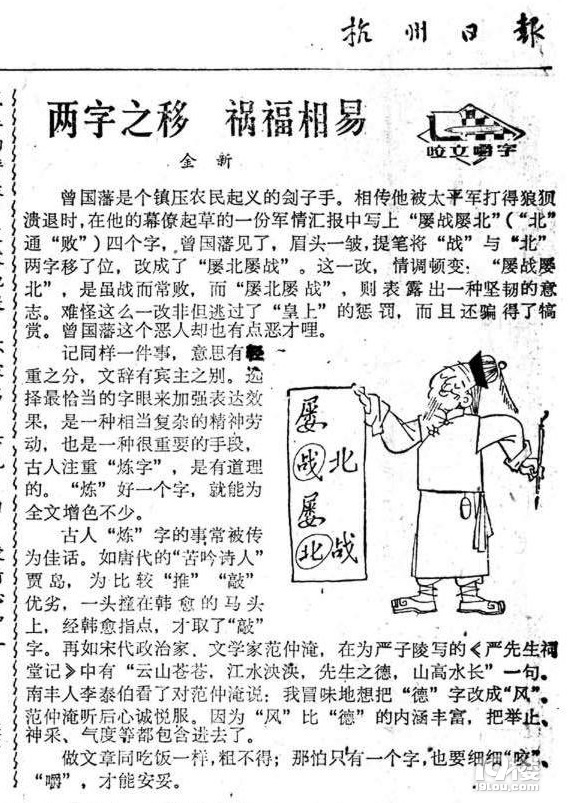 杭州日报
两字之移　祸福相易
咬文嚼字
金新
曾国藩是个镇压农民起义的刽子手。相传他被太平军打得狼狈
溃退时，在他的幕僚起草的一份军情汇报中写上“屡战屡北”（“北”
通“败”）四个字，曾国藩见了，眉头一皱，提笔将“战”与“北”
两字移了位，改成了“屡北屡战”。这一改，情调顿变：“屡战屡
北”，是虽战而常败，而“屡北屡战”，则表露出一种坚韧的意
志。难怪这么一改非但逃过了“皇上”的惩罚，而且还骗得了犒
赏。曾国藩这个恶人却也有点恶才哩。
记同样一件事，意思有轻
重之分，文辞有宾主之别。选
择最恰当的字眼来加强表达效
果，是一种相当复杂的精神劳
动，也是一种很重要的手段，
古人注重“炼字”，是有道理
的。“炼”好一个字，就能为
全文增色不少。
古人“炼”字的事常被传
为佳话。如唐代的“苦吟诗人”
贾岛，为比较“推”“敲”
优劣，一头撞在韩愈的马头
上，经韩愈指点，才取了“敲”
字。再如宋代政治家、文学家范仲淹，在为严子陵写的《严先生祠
堂记》中有“云山苍苍，江水泱泱，先生之德，山高水长”一句。
南丰人李泰伯看了对范仲淹说：我冒昧地想把“德”字改成“风”。
范仲淹听后心诚悦服。因为“风”比“德”的内涵丰富，把举止、
神采、气度等都包含进去了。
做文章同吃饭一样，粗不得；那怕只有一个字，也要细细“咬”、
“嚼”，才能安妥。
屡
战北
屡
北战
19楼
19lou.com